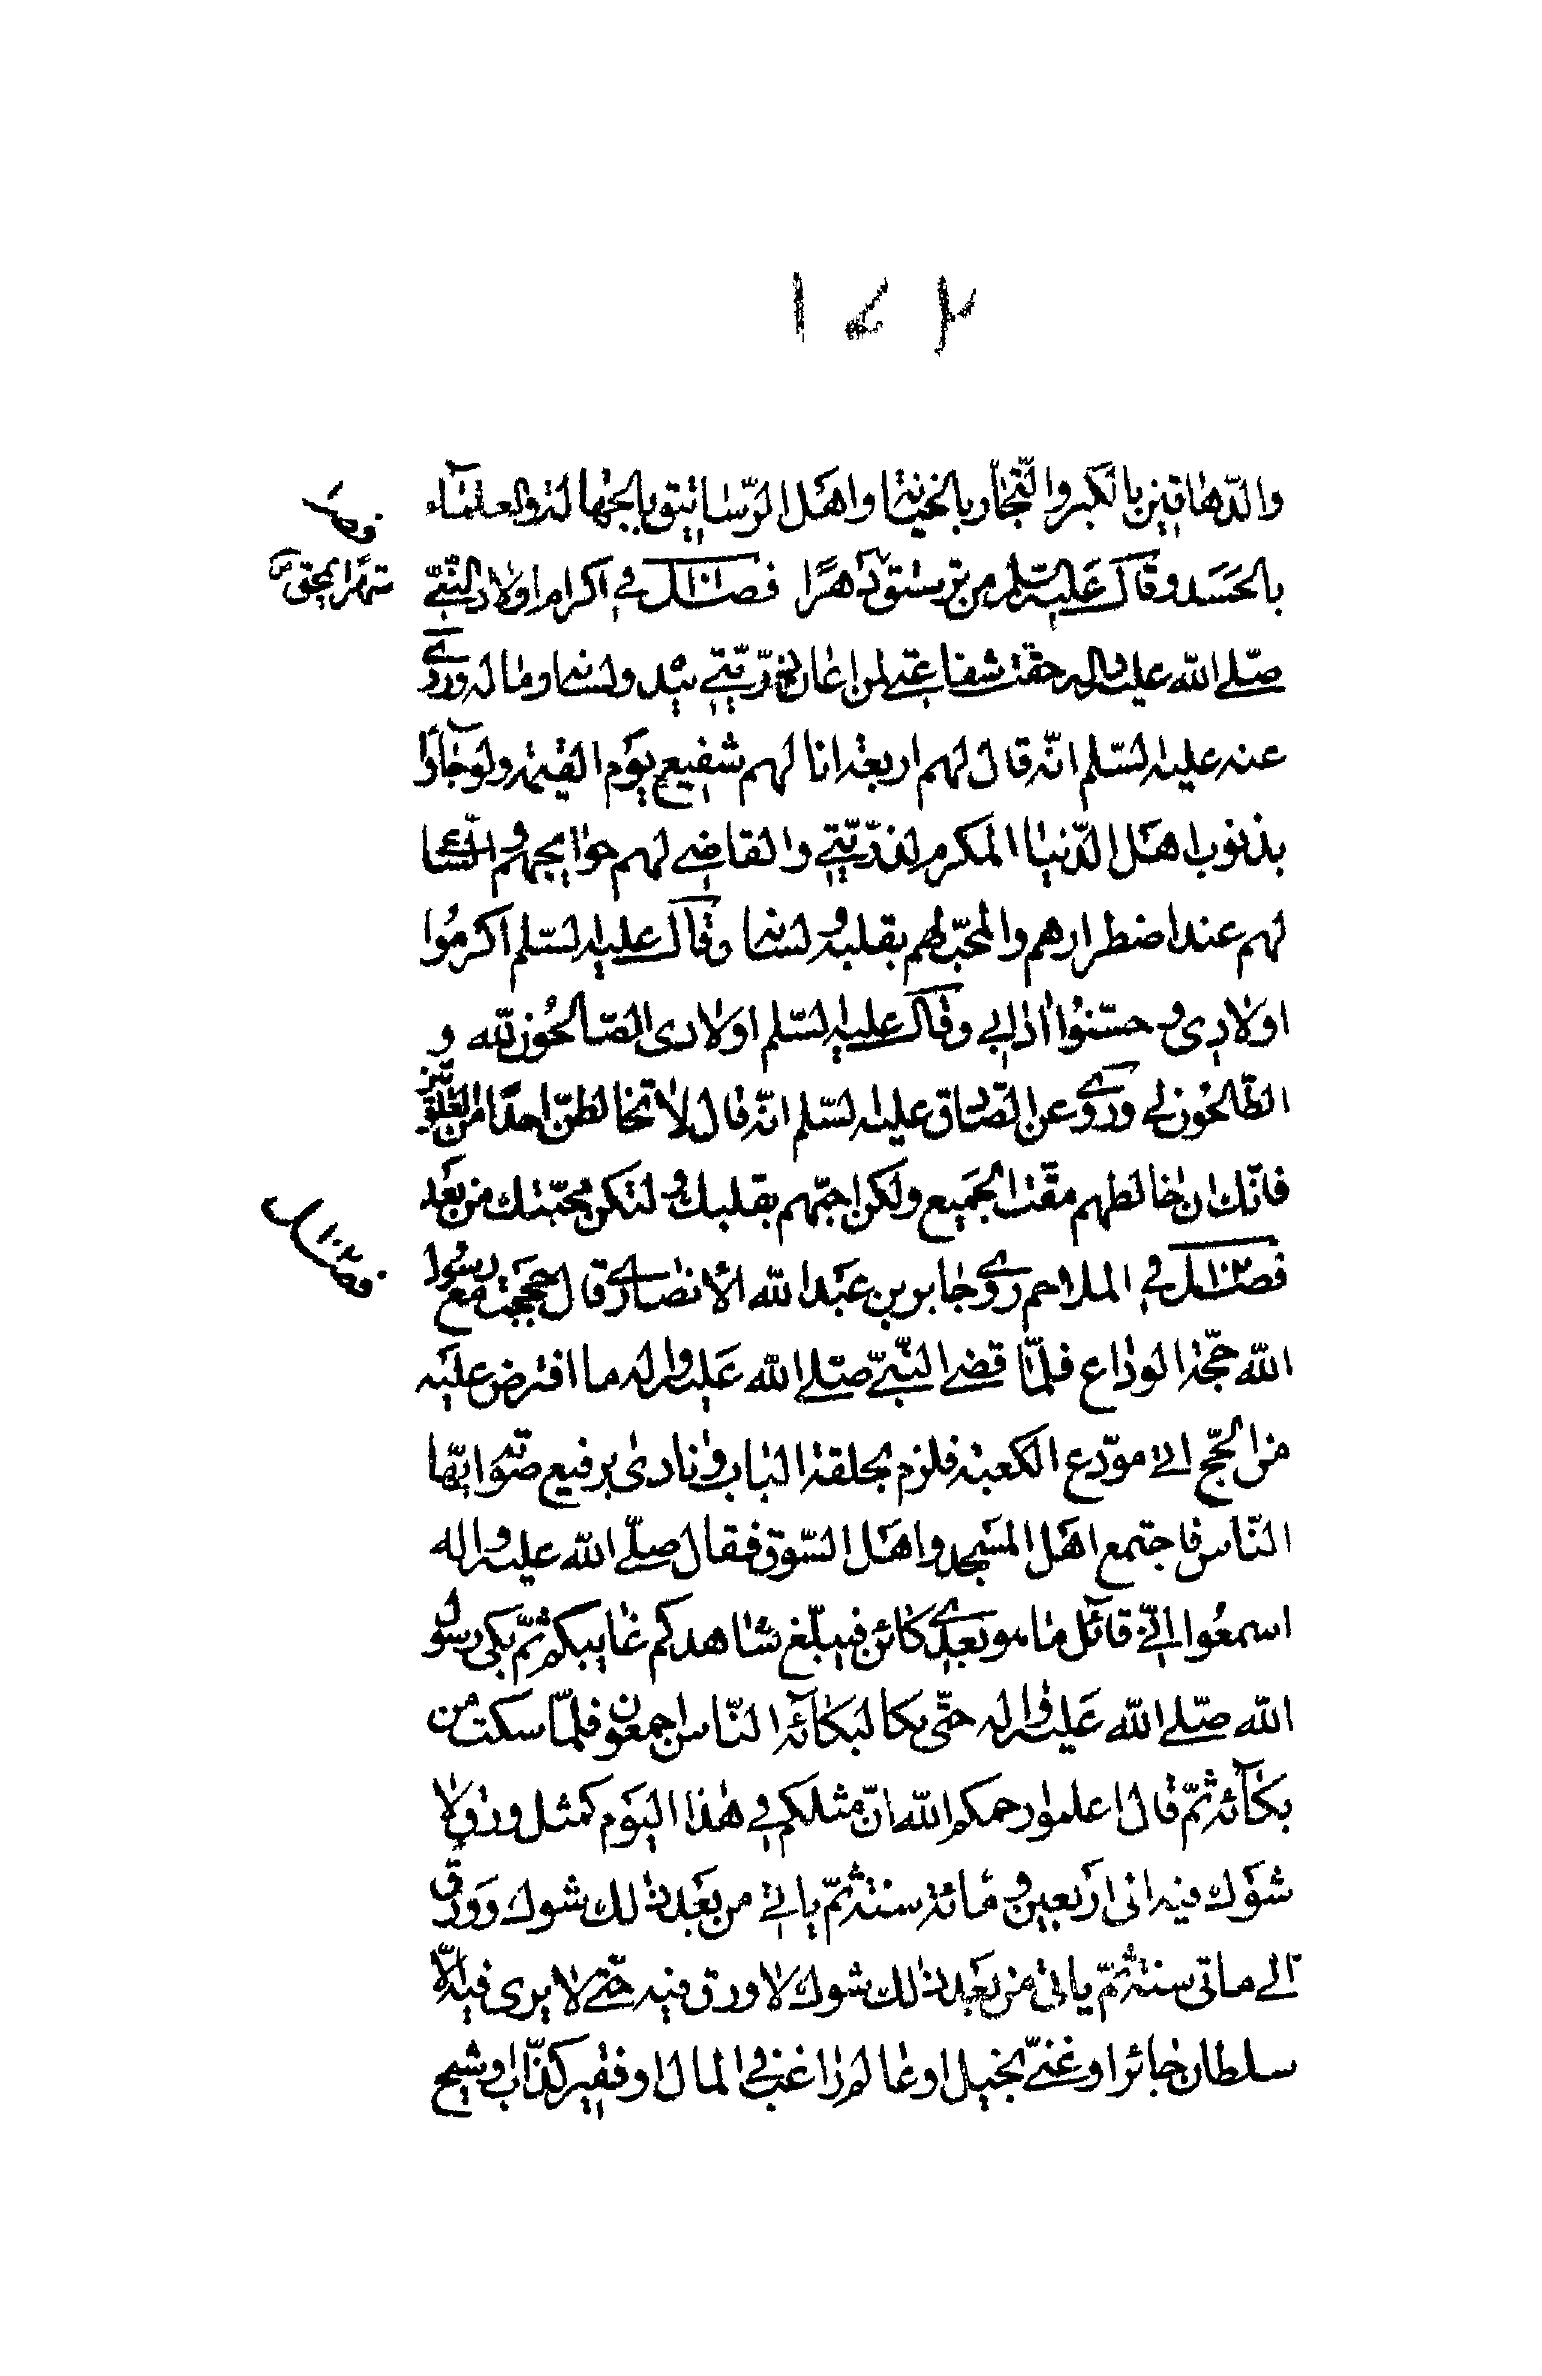 ١٤٢
والدّهاقين بالكبر والتّجار بالخيانة واهل الرّساتيق بالجهالة والعلماء
بالحسد وقال عليه السّلم من ترستق شهرًا تحمق دهرًا فصل ١٠١ في اكرام اولاد النّبيّ
صلّى الله عليه واله حقّت شفاعتي لمن اعان ذرّيّتي بيده ولسانه وماله وروي
عنه عليه السّلم انّه قال لهم اربعة انا لهم شفيع يوم القيمة ولو جآؤا
بذنوب اهل الدّنيا المكرم لذرّيّتي والقاضي لهم حوايجهم والسّاعي
لهم عند اضطرارهم والمحبّ لهم بقلبه ولسانه وقال عليه السّلم اكرمُوا
اولادي وحسّنوا ادابي وقال عليه السّلم اولادى الصّالحُون لله و
الطّالحُون لي وروي عن الصّادق عليه السّلم انّه قال لا تخالطنّ احدًا من العلويّين
فانّك ان خالطهم مقّت الجميع ولكن احبّهم بقلبك ولتكن محبّتك من بعد
فصل ١٠٢ في الملاحم روي جابر بن عبد الله الأنصاري قال حججت مع رسُول
الله حجّة الوداع فلمّا قضى النّبيّ صلّى الله عليه واله ما افترض عليه
من الحجّ اتى مودّع الكعبة فلزم بحلقة الباب ونادى برفيع صوته ايّها
النّاس فاجتمع اهل المسجد واهل السّوق فقال صلّى الله عليه واله
اسمعُوا انّي قآئل ما هو بعدي كائن فيبلّغ شاهدكم غايبكم ثمّ بكى رسُول
الله صلّى الله عليه واله حتّى بكا لبكآئه النّاس اجمعون فلمّا سكت من
بكآئه ثمّ قال اعلموا رحمكم الله انّ مثلكم في هذا اليوم كمثل ورق لا
شوك فيه الى اربعين ومائة سنة ثمّ ياتي من بعد ذلك شوك وورق
الى ماتى سنة ثمّ ياتى من بعد ذلك شوك لا ورق فيه حتّى لا يرى فيه الّا
سلطان جائر او غنيّ بخيل او عالم راغب في المال او فقير كذّاب او شيخ
فصل
فصل ١٠٢